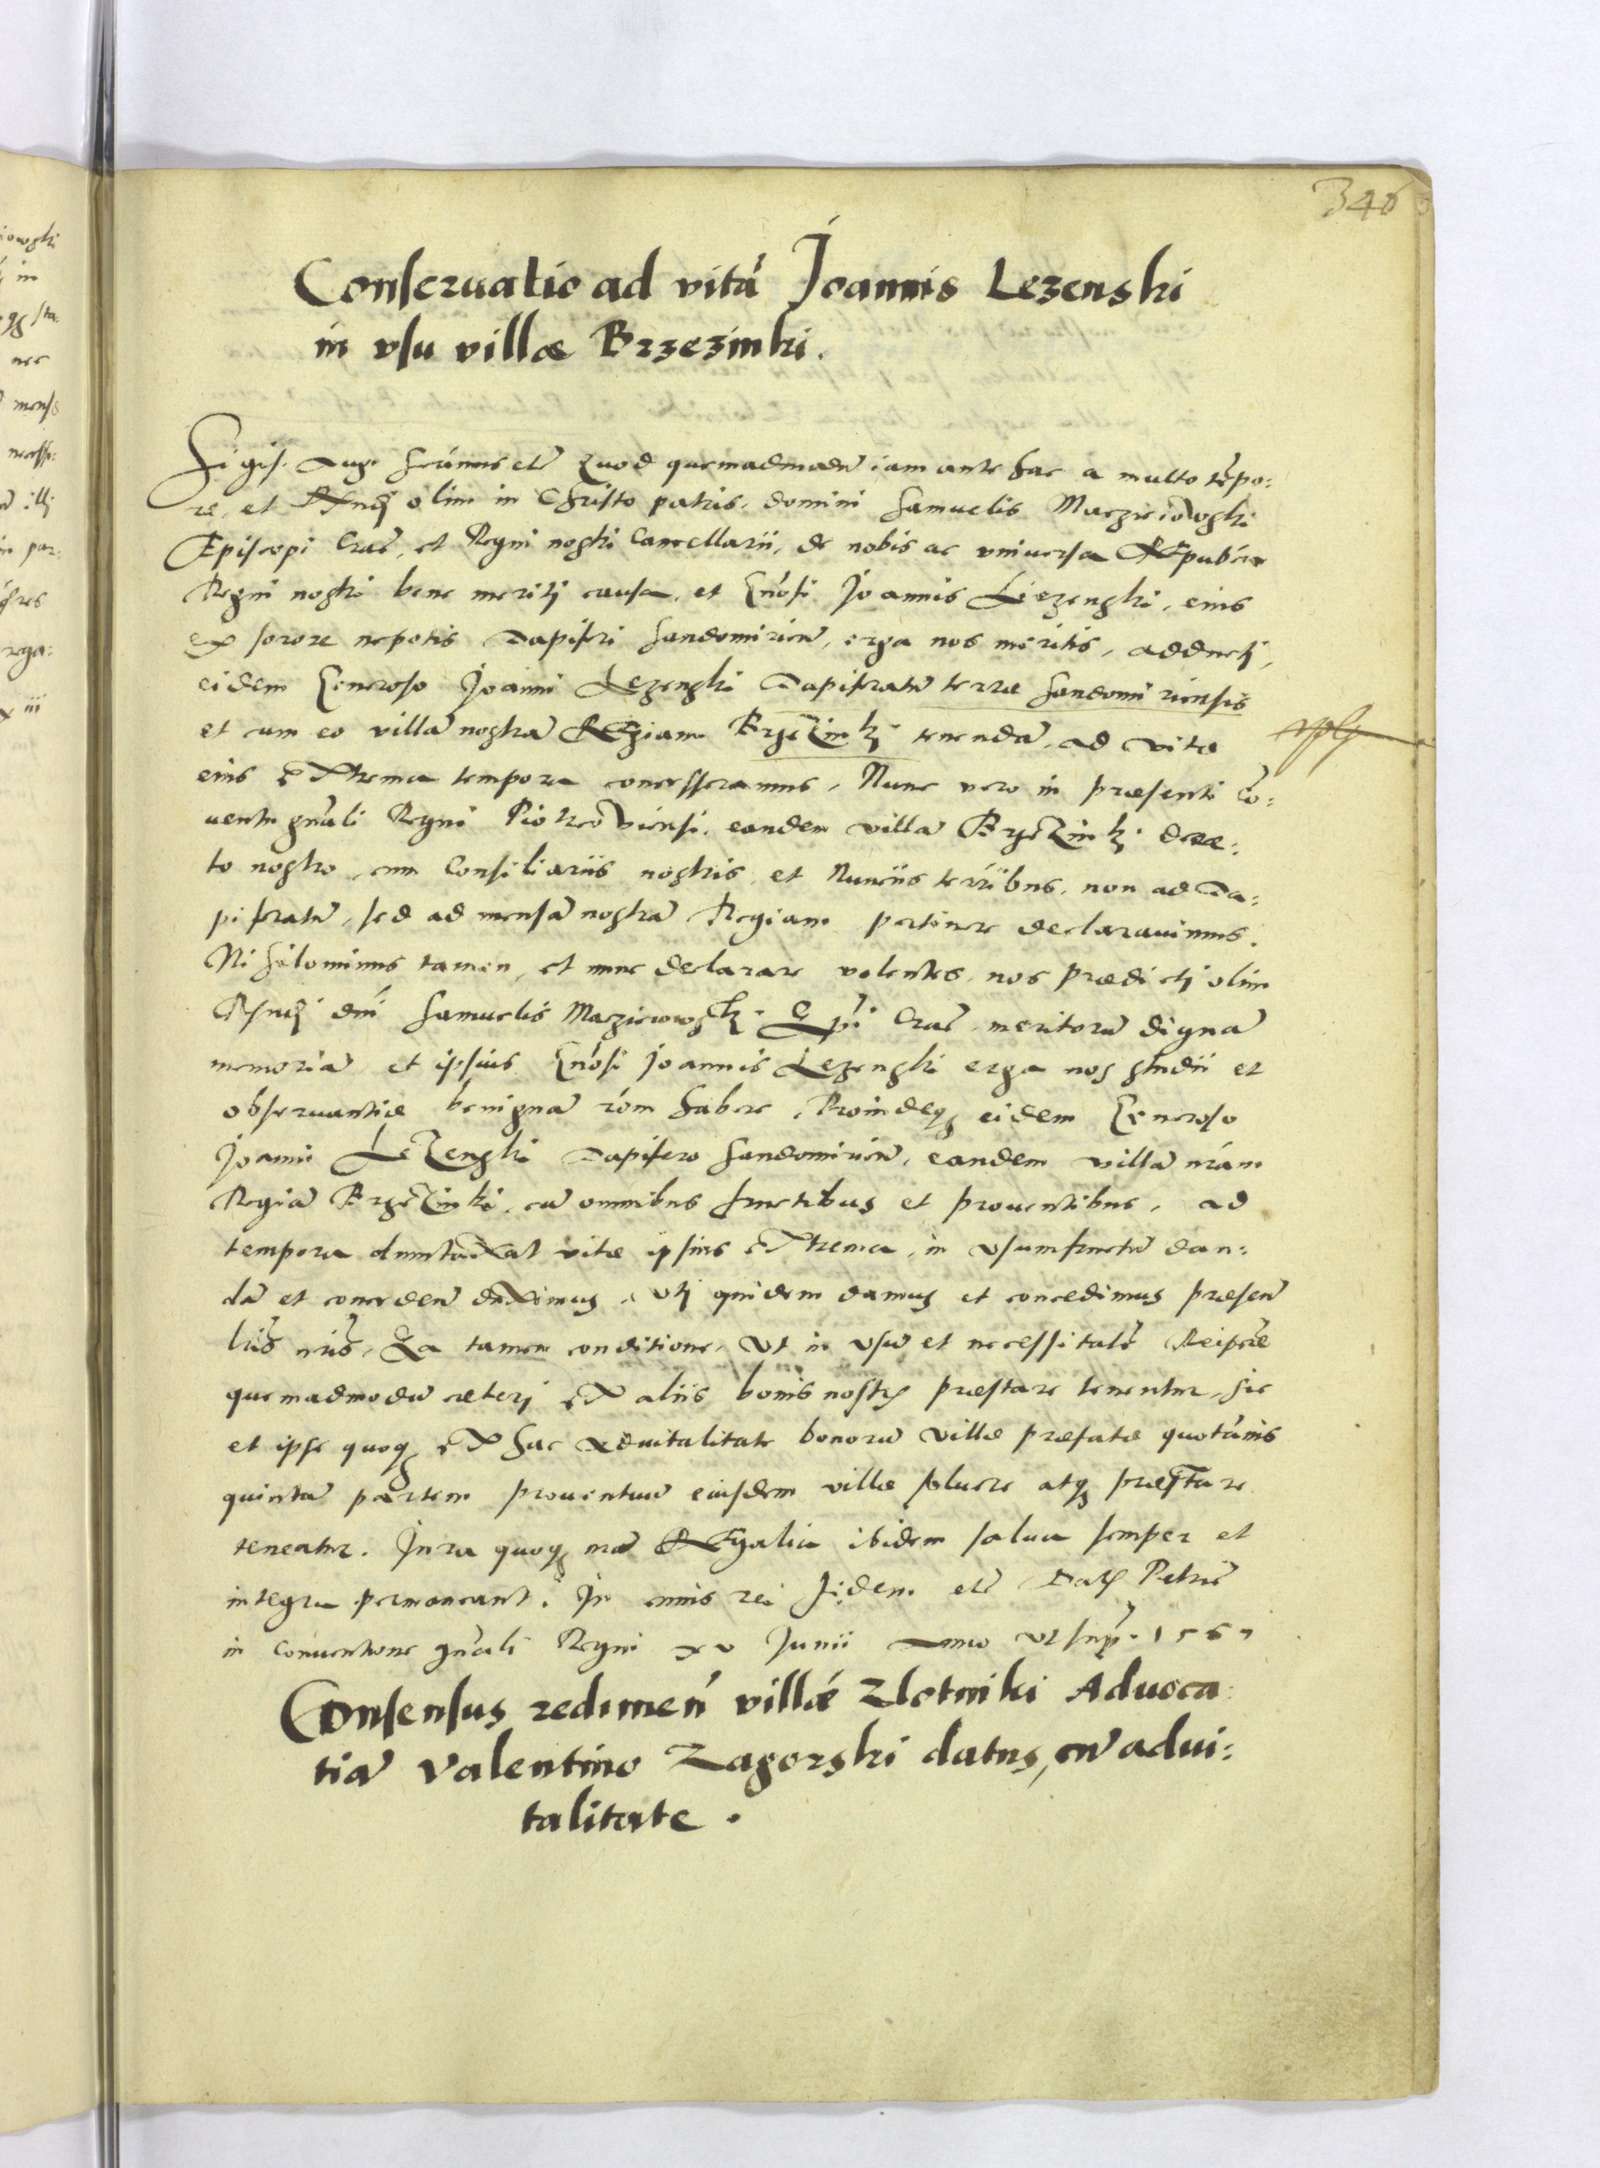 346
Conseruatio ad vitã Joannis Lezenski
in vsu villæ Brzezinki.
Sigis. Aug. ... etc Quod quemadmodũ iam ante hac a multo tẽpo:
re, et Rñdi olim in Christo patris, domini Samuelis Maczieiowski
Episcopi Crac̃, et Regni nostri Cancellarii, de nobis ac vniuersa Republica
Regni nostri bene meriti causa, et Gñosi Joannis Liezenski, eius
ex sorore nepotis Dapiferi Sandomirieñ, erga nos meritis, adducti,
eidem Generoso Joanni Lezenski Dapiferatũ terræ Sandomiriensis
et cum eo villã nostrã Regiam Brzezinki tenendã, ad vitæ
eius extrema tempora concesseramus, Nunc vero in præsenti Cõ:
uentu gñali Regni Piotrcouiensi, eandem villã Brzezinki decre:
to nostro, cum Consiliariis nostris, et Nunciis terr̃ibus, non ad Da:
piferatũ, sed ad mensã nostrã Regiam pertinere declarauimus.
Nihilominus tamen, et nunc declarare volentes, nos prædicti olim
Rñdi dñi Samuelis Macziewski Epĩ Crac̃ meritorũ dignã
memoriã et ipsius Gñosi Joannis Lezenski erga nos studii et
obseruantiæ benignã rõm habere, Proindeq₃ eidem Generoso
Joanni Lezenski Dapifero Sandomirieñ, eandem villã nr̃am
Regiã Brzezinki, cũ omnibus fructibus et prouentibus, ad
tempora duntaxat vitæ ipsius extrema, in vsumfructũ dan:
dã et concedeñ duximus, vti quidem damus et concedimus præseñ
lr̃is nr̃is, Ea tamen conditione, vt in vsũ et necessitatẽ Reipcæ
quemadmodũ cæteri ex aliis bonis nostris præstare tenentur, sic
et ipse quoq₃ ex hac aduitalitate bonorũ villæ præfatæ quotãnis
quintã partem prouentuũ eiusdem villæ soluere atq₃ præstare
teneatur. Jura quoq₃ nr̃a Regalia ibidem salua semper et
integra permaneant. In cuius rei fidem etc Dat Petric̃
in Conuentione gñali Regni xv Junii Anno vt sup. 1567
Consensus redimeñ villæ Zlotniki Aduoca:
tiã Valentino Zagorski datus, cũ adui:
talitate.